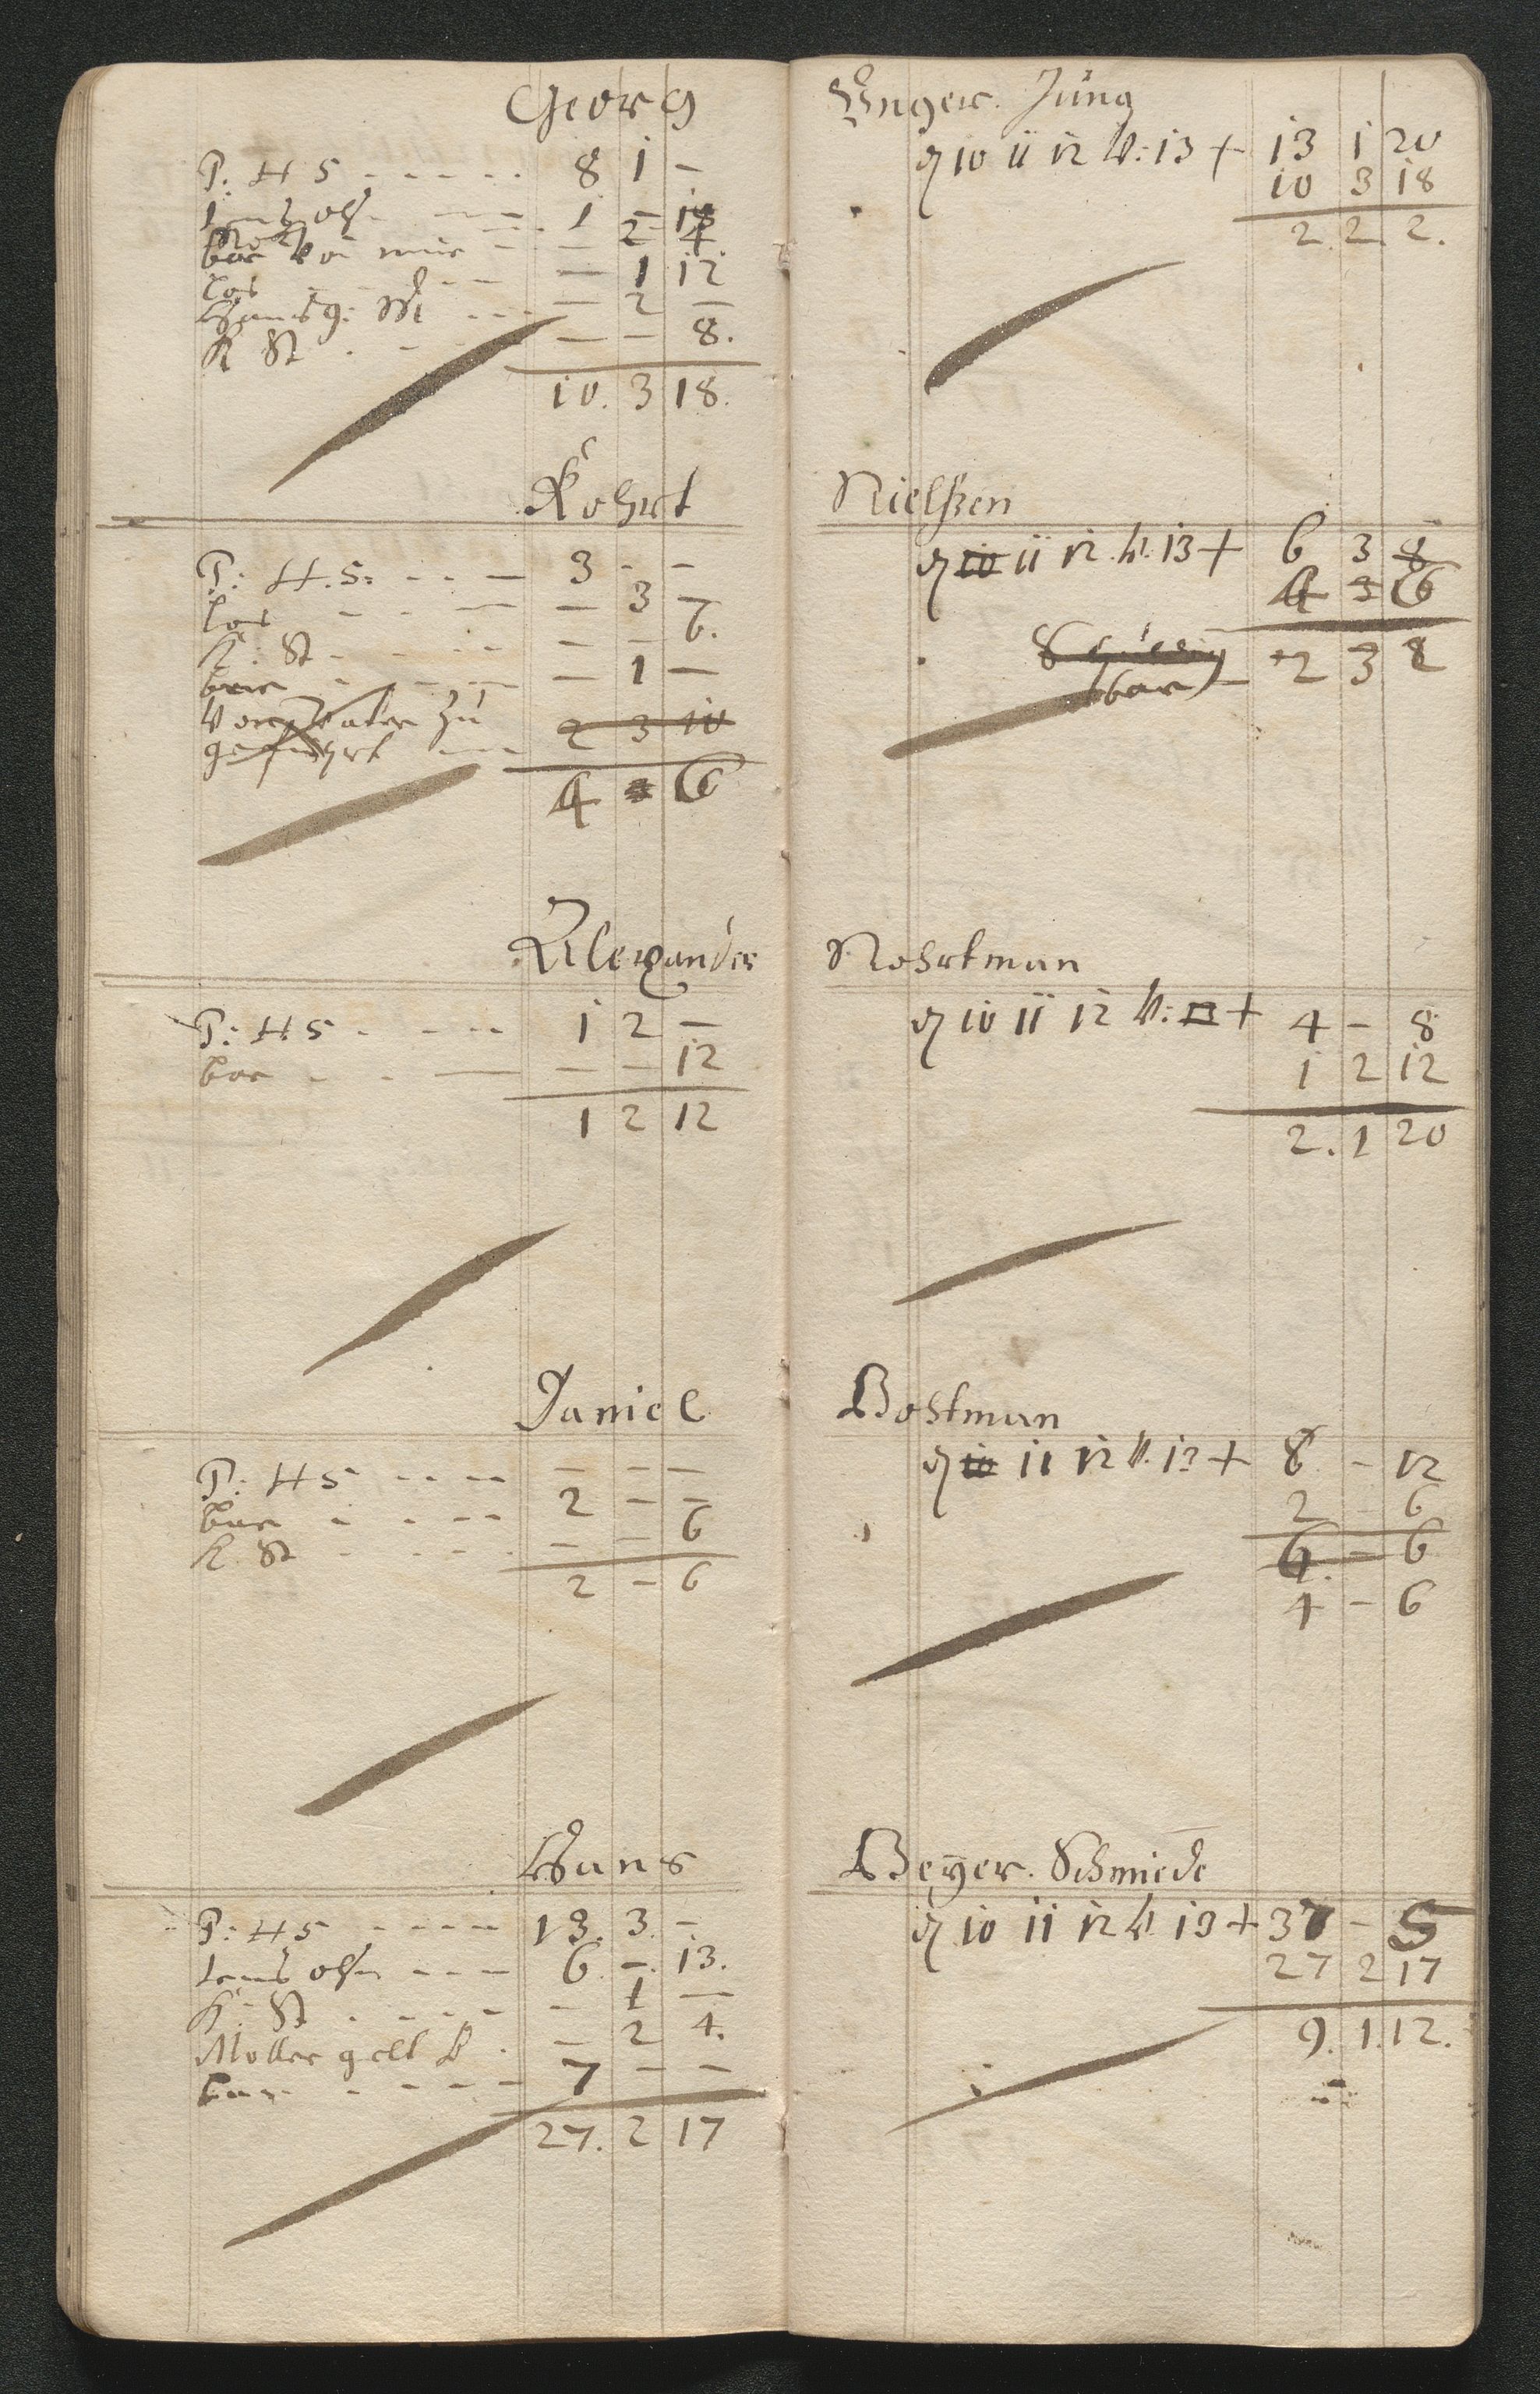 Georg
P: H S 8 1 -
1 - 18
2 4
los - 1 12
- 2 -
K St - - 8.
10. 3 18.
Rohrt
P: H. S: 3 - -
los - 3 -
K: St - - 6.
- 1 -
Von Vater zu
geführt 2 3 10
4 6
Alexander
P: H S 1 2 -
bar - - 12
1 2 12
Daniel
P: H S - - -
bar 2 - -
K. St - - 6
2 - 6
Hans
P: H S 13. 3. -
6 - 13.
K: St - 1 -
Moller gelt - 2 4.
bar 7 - -
27. 2 17
Unger. Jung
10 11 12 13 + 13 1 20
10 3 18
2. 2 2.
Nielßen
10 11 12 13 + 6 3 8
4 6
bar 2 3 2
Nohrtman
10 11 12 + 4 - 8
1 2 12
2. 1 20
Bohtman
10 11 12 13 + 8 - 12
2 - 6
6 - 6
4 - 6
Beÿer. Schmiede
10 11 12 13 + 37 - 5
27 2 17
9. 1. 12.